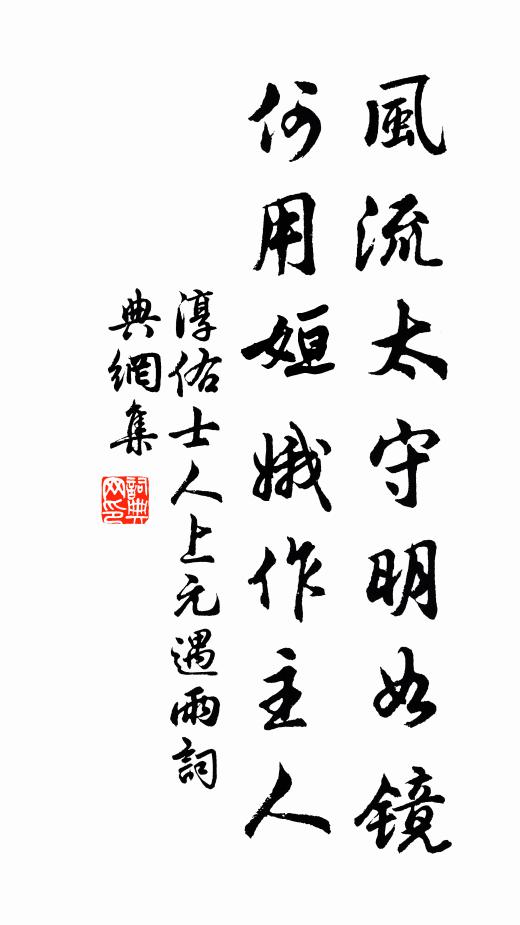 風流太守明如镜
何用姮娥作主人
淳佑士人上元遇雨詞
典網集
詞典网印